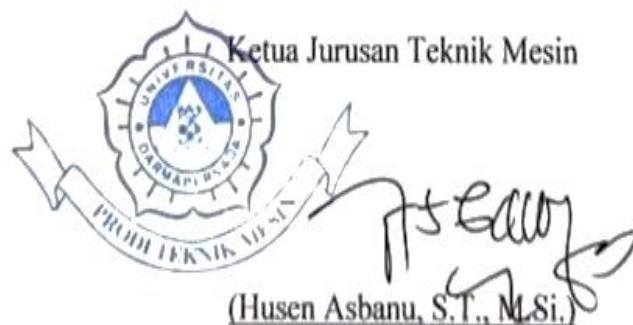 Ketua Jurusan Teknik Mesin
UNIVERSITAS
DARMA PERSADA
PRODI TEKNIK MESIN
(Husen Asbanu, S.T., M.Si.)